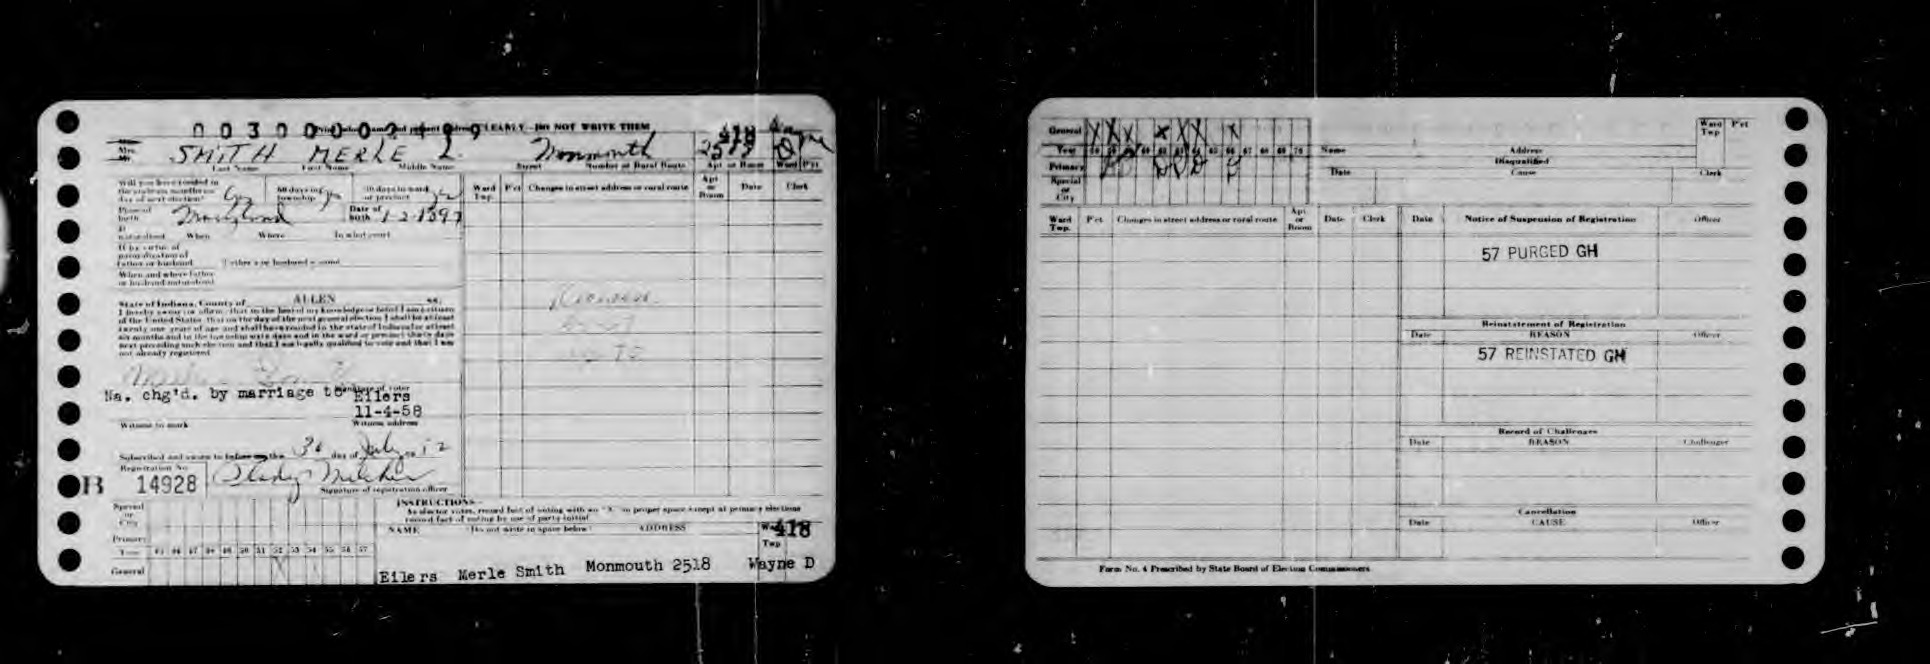 00300002499
CLEARLY - DO NOT WRITE THEM
418
Mrs. SMITH MERLE L. Monmouth
Last Name First Name Middle Name Street Number or Rural Route Apt or Room Ward Pct
Will you have resided in the state six months on day of next election? 60 days in township 30 days in ward or precinct
Ward Twp. Pct Changes in street address or rural route Apt or Room Date Clerk
Place of birth Maryland Date of birth 1-2-1897
If naturalized When Where In what court
If by virtue of naturalization of father or husband Father's or husband's name
When and where father or husband naturalized
State of Indiana, County of ALLEN ss:
I hereby swear or affirm, that to the best of my knowledge or belief I am a citizen
of the United States, that on the day of the next general election I shall be at least
twenty one years of age and shall have resided in the state of Indiana for at least
six months and in the township sixty days and in the ward or precinct thirty days
next preceding such election and that I am legally qualified to vote and that I am
not already registered.
Signature of voter
Na. chg'd. by marriage to Eilers
11-4-58
Witness to mark Witness address
Subscribed and sworn to before me this day of July 52
Registration No.
R 14928
Signature of registration officer
INSTRUCTIONS-
As elector votes, record fact of voting with an "X" in proper space except at primary elections
record fact of voting by use of party initial
Special or City
Primary
NAME (Do not write in space below) ADDRESS Ward 418
Twp
Year 45 46 47 48 49 50 51 52 53 54 55 56 57
General
Eilers Merle Smith Monmouth 2518 Wayne D
General X X X X X X X
Year 60 62 64 65 66 67 68 69 70
Name Address Ward Twp Pct
Primary D D D
Special or City
Disqualified
Date Cause Clerk
Ward Twp. Pct Changes in street address or rural route Apt or Room Date Clerk
Date Notice of Suspension of Registration Officer
57 PURGED GH
Reinstatement of Registration
Date REASON Officer
57 REINSTATED GH
Record of Challenges
Date REASON Challenger
Cancellation
Date CAUSE Officer
Form No. 4 Prescribed by State Board of Election Commissioners